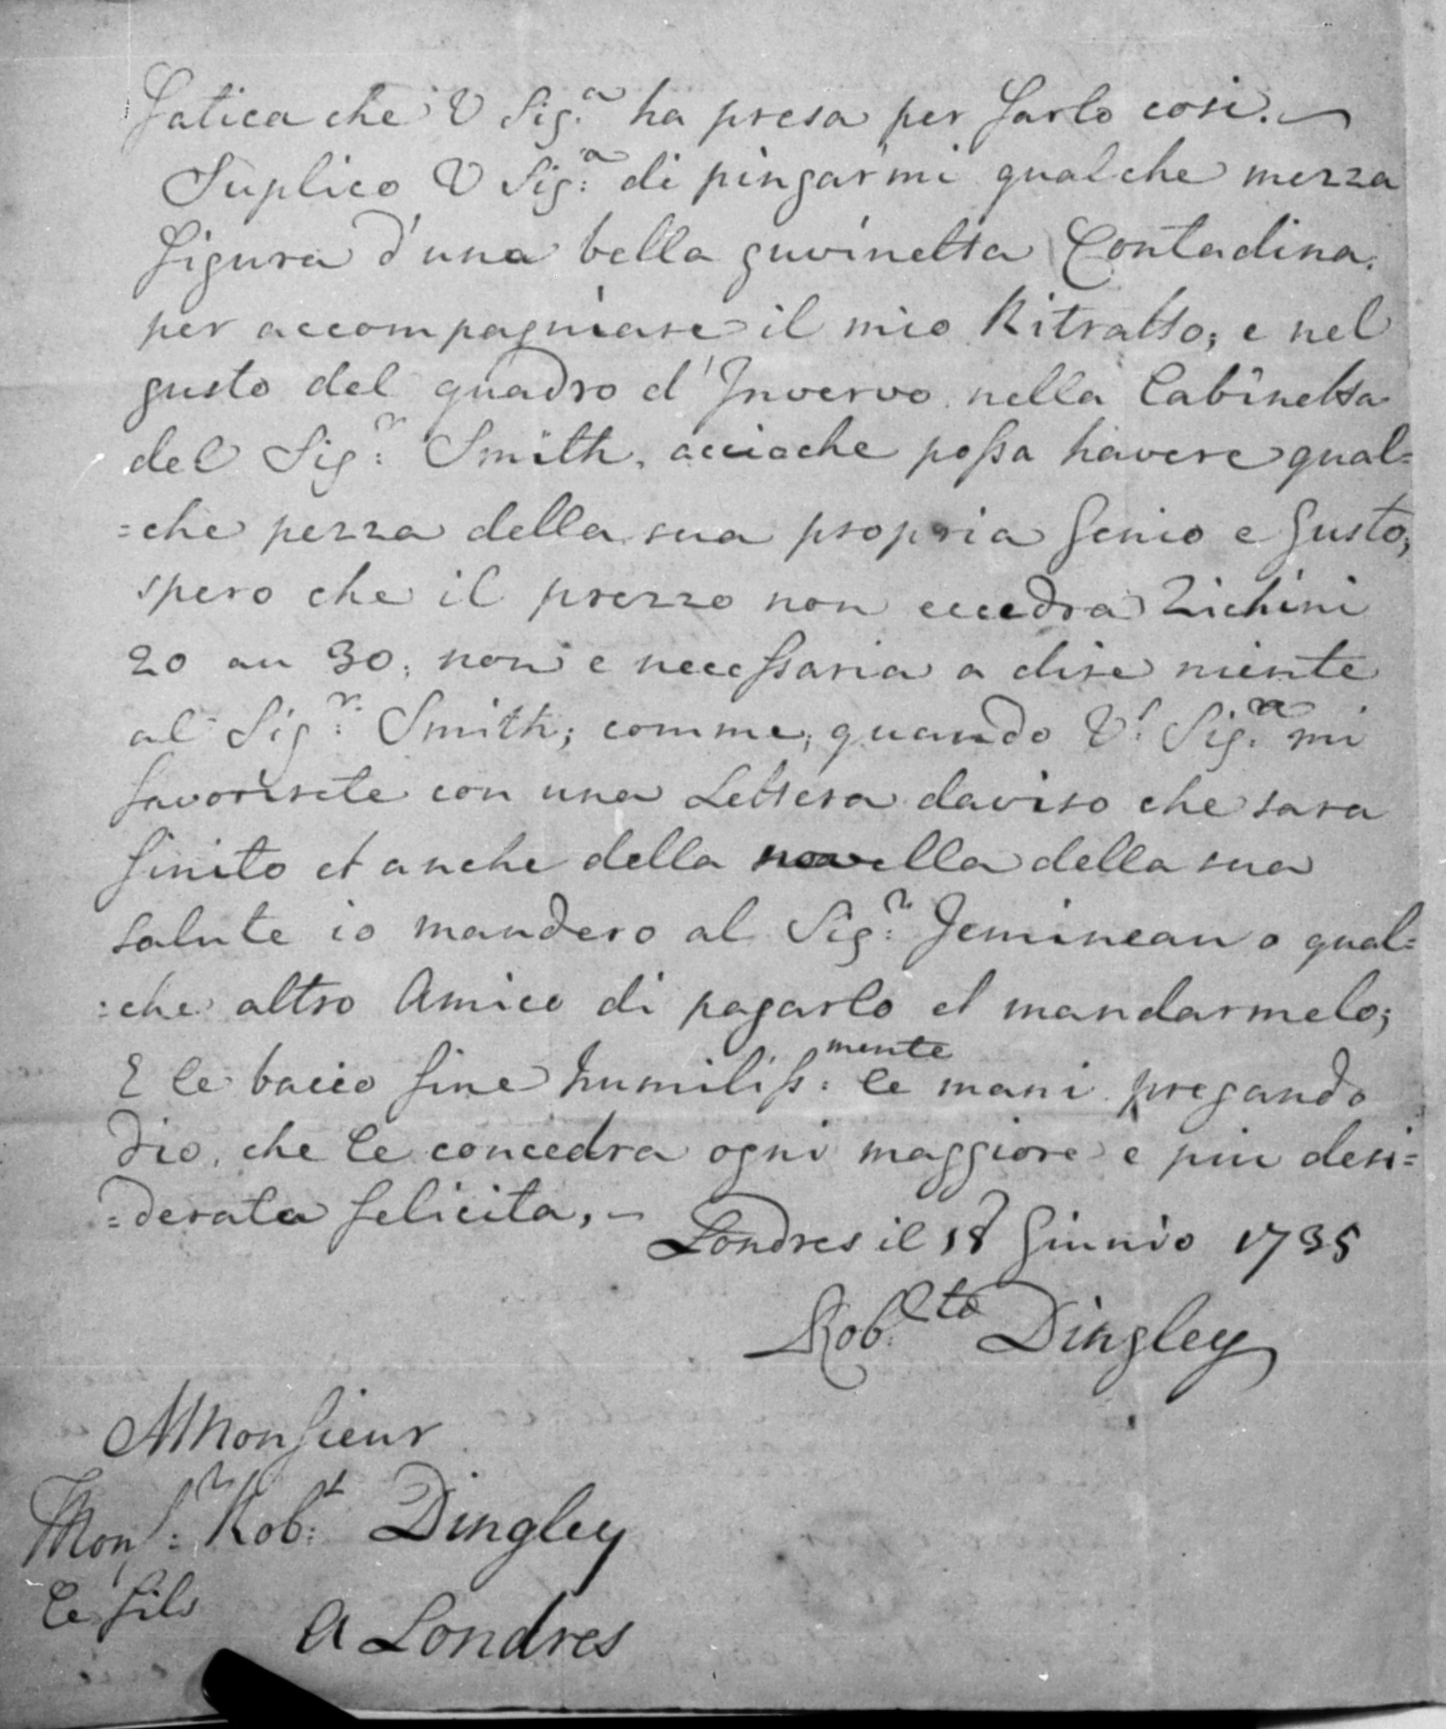 fatica che V Sig.a ha presa per farlo cosi.
Suplico V Sig.a di pingarmi qualche mezza
figura d'una bella guvinetta Contadina.
per accompagniare il mio Ritratto; e nel
gusto del quadro d'Invervo nella Cabinetta
del Sig.r Smith, accioche possa havere qual=
=che pezza della sua propria Genio e Gusto;
spero che il prezzo non eccedra Zichini
20 au 30; non e necessaria a dire niente
al Sig.r Smith; comme, quando V.s Sig.a mi
favorisete con una Lettera daviso che sara
finito et anche della novella della sua
salute io mandero al Sig.r Jemineau o qual=
=che altro Amico di pagarlo et mandarmelo;
E le bacio fine humiliss:mente le mani pregando
Dio, che le concedra ogni maggiore e piu desi=
=derata felicita,
Londres il 18 Giunio 1735
Rob.erto Dingley
A Monsieur
Mons.r Rob.t Dingley
le fils
A Londres